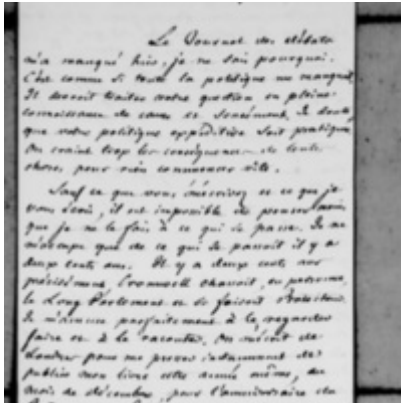 Le Journal des débats
m'a manqué hier, je ne sais pourquoi.
C'est comme si toute la politique me manquait.
Il devrait traiter votre question en pleine
connaissance de cause et forcément. Je doute
que votre politique expéditive soit pratiquée.
On craint trop les conséquences de toute
chose, pour rien commencer vite.
Sauf ce que vous m'écrivez et ce que je
vous écris, il est impossible de penser moins
que je ne le fais à ce qui se passe. Je ne
m'occupe que de ce qui se passait il y a
deux cents ans. Il y a deux cents ans
précisément, Cromwell chassait, en personne,
le Long Parlement et se faisait Protecteur.
Je m'amuse parfaitement à le regarder
faire et à le raconter. On m'écrit de
Londres pour me presser instamment de
publier mon livre cette année même, au
mois de décembre, pour l'anniversaire du